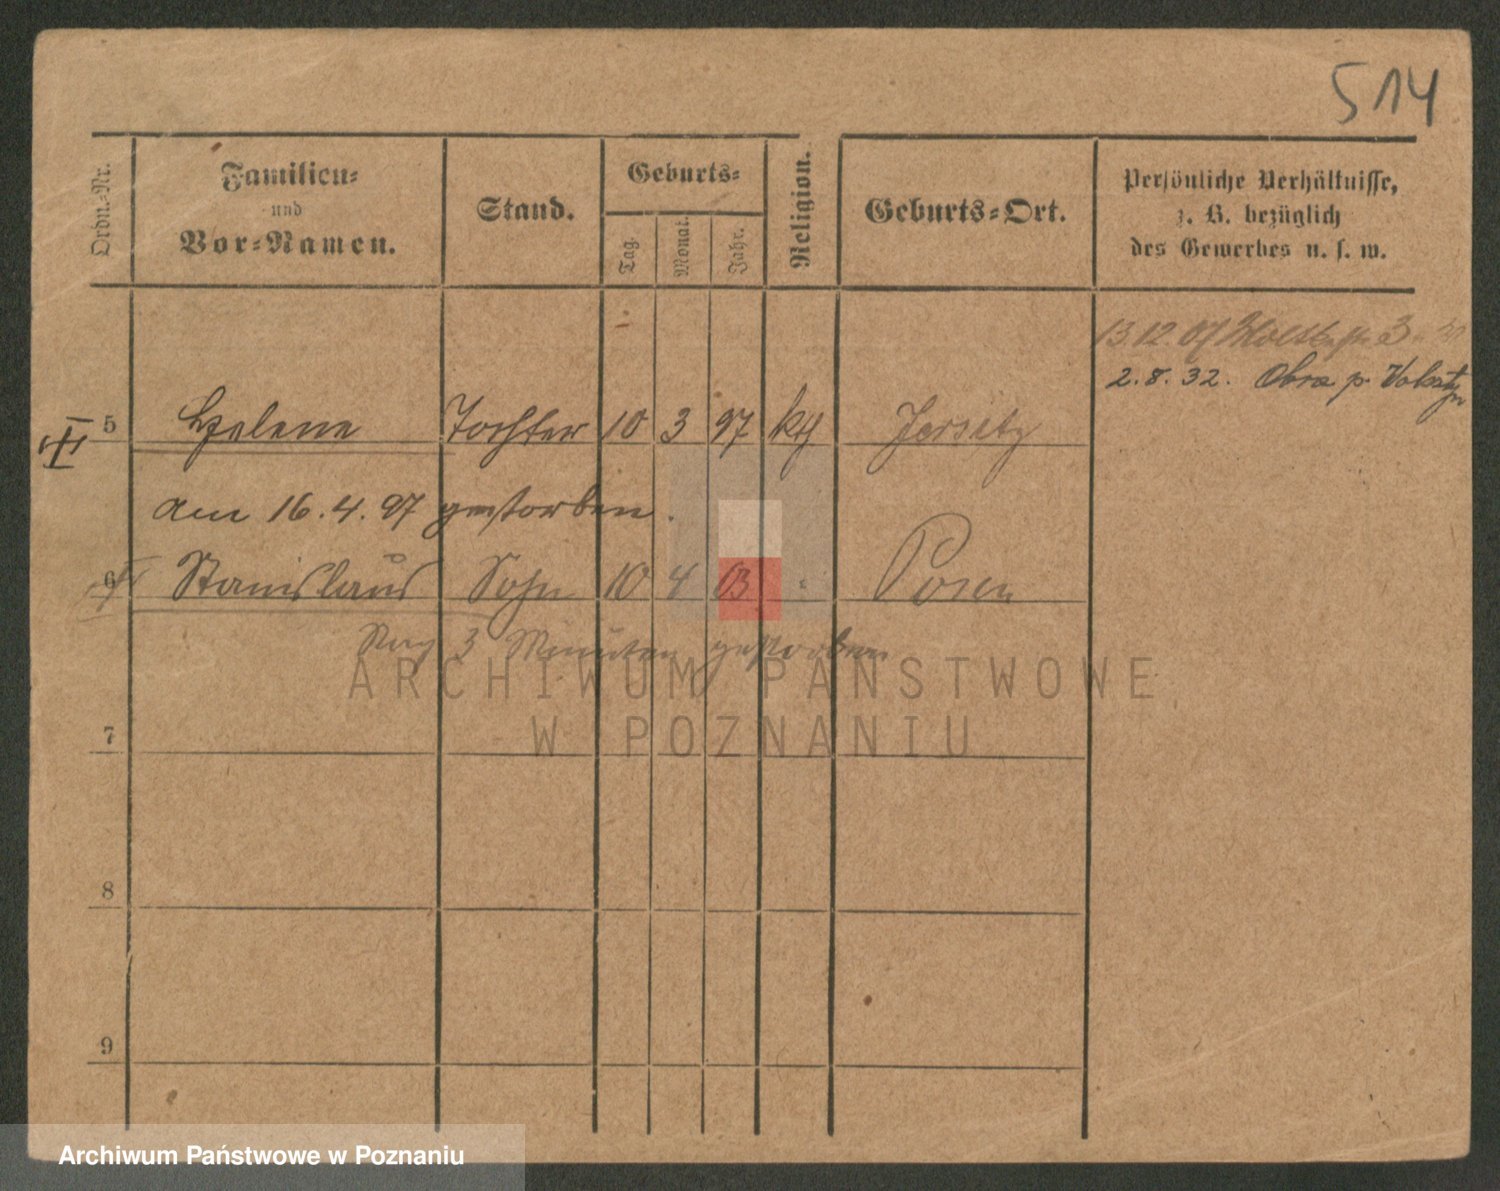 514
Ordn.-Nr.
Familien-
und
Vor-Namen.
Stand.
Geburts-
Tag.
Monat.
Jahr.
Religion.
Geburts-Ort.
Persönliche Verhältnisse,
z. B. bezüglich
des Gewerbes u. s. w.
13.12.07 3
2.8.32. Obra p.
5 Helene Tochter 10 3 97 kth Jersitz
am 16.4.97 gestorben.
6 Stanislaus Sohn 10 4 03 " Posen
Nach 3 Minuten gestorben
ARCHIWUM PAŃSTWOWE
W POZNANIU
7
8
9
Archiwum Państwowe w Poznaniu